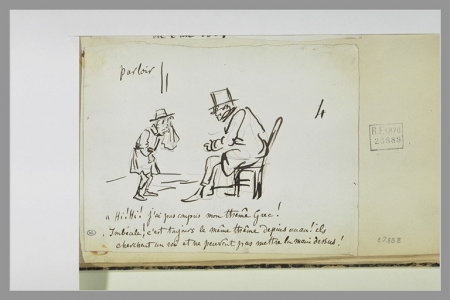 parloir
4
R.F. 1870
23888
« Hi! Hi! j'ai pas compris mon thème Grec!
. Imbécile! c'est toujours le même thème depuis un an! ils
cherchent un et ne peuvent pas mettre la main dessus!